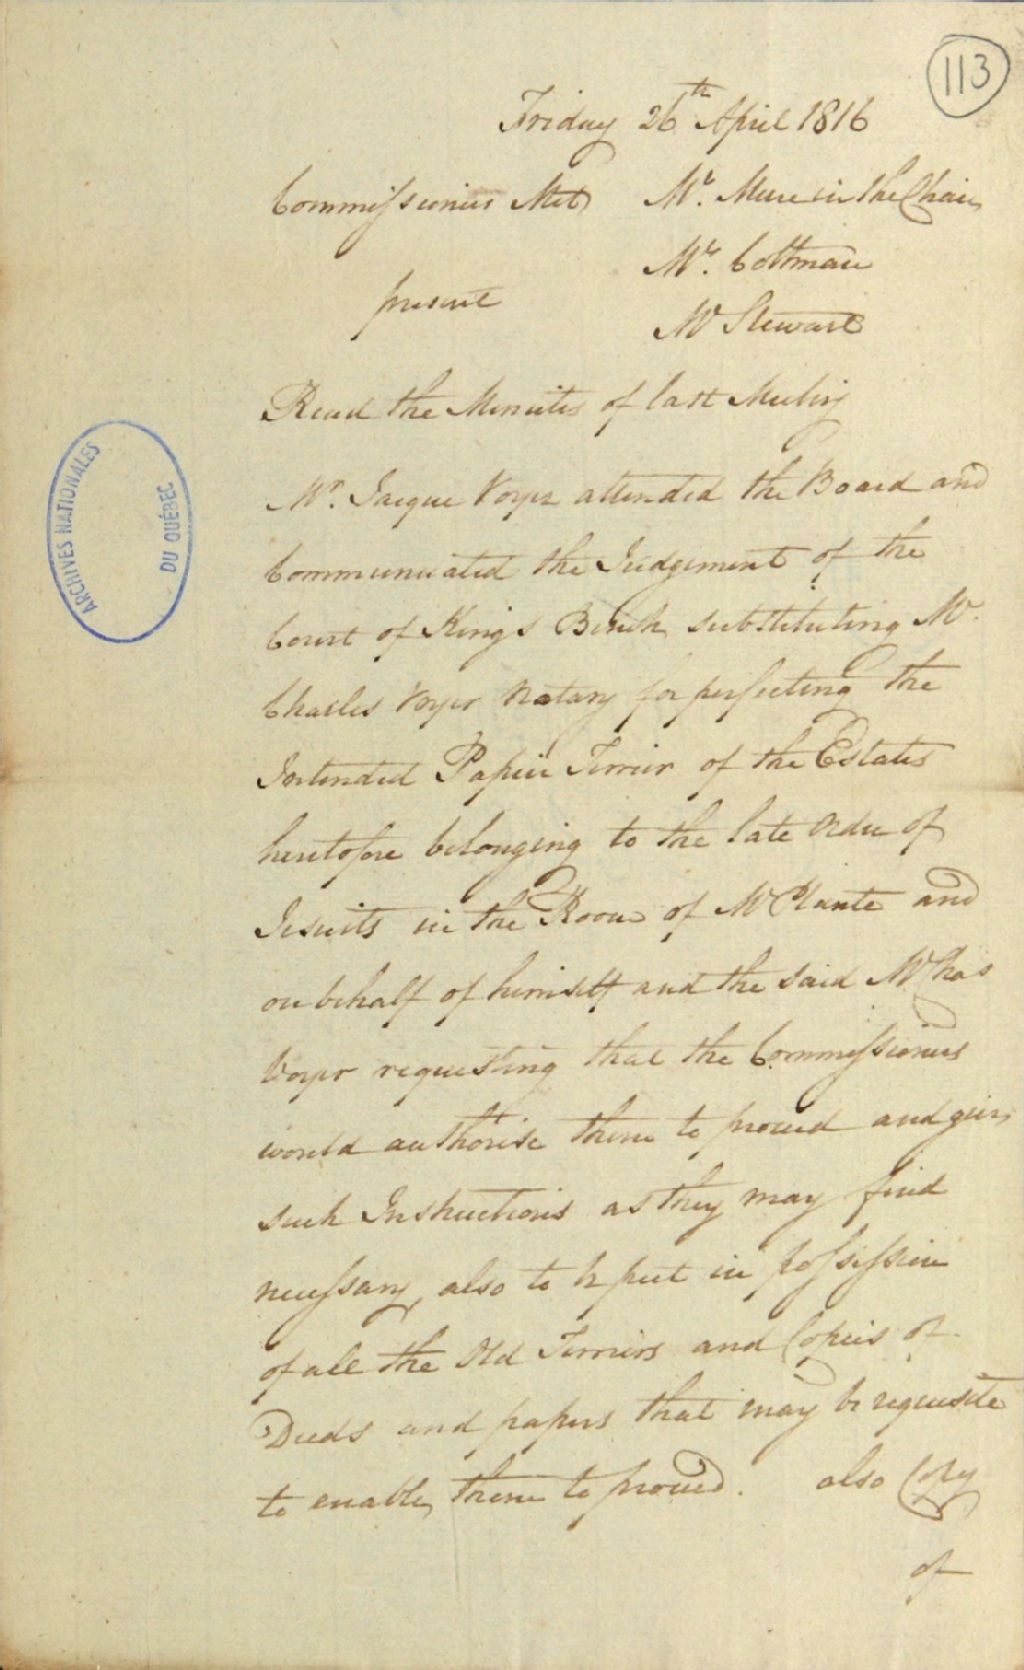 113
Friday 26th April 1816
Commissioners Met Mr. Mure in the Chair
Mr. Coltman
present
Mr Stewart
Read the Minutes of last Meeting
Mr. Jacque Voyer attended the Board and
Communicated the Judgement of the
Court of Kings Bench substituting Mr.
Charles Voyer Notary for perfecting the
Intended Papier Terrier of the Estates
heretofore belonging to the late Order of
Jesuits in the Room of Mr Plante and
on behalf of himself and the said Mr Chas
Voyer requesting that the Commissioners
would authorise them to proceed and give
such Instructions as they may find
necessary, also to be put in possession
of all the Old Terriers and Copies of
Deeds and papers that may be requisite
to enable them to proceed. also Copy
of
ARCHIVES NATIONALES
DU QUÉBEC